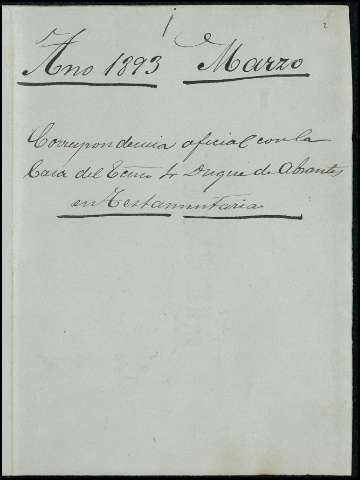 2
Año 1893 Marzo
Correspondencia oficial con la
Casa del Ecmo Sr Duque de Abrantes
en Testamentaria